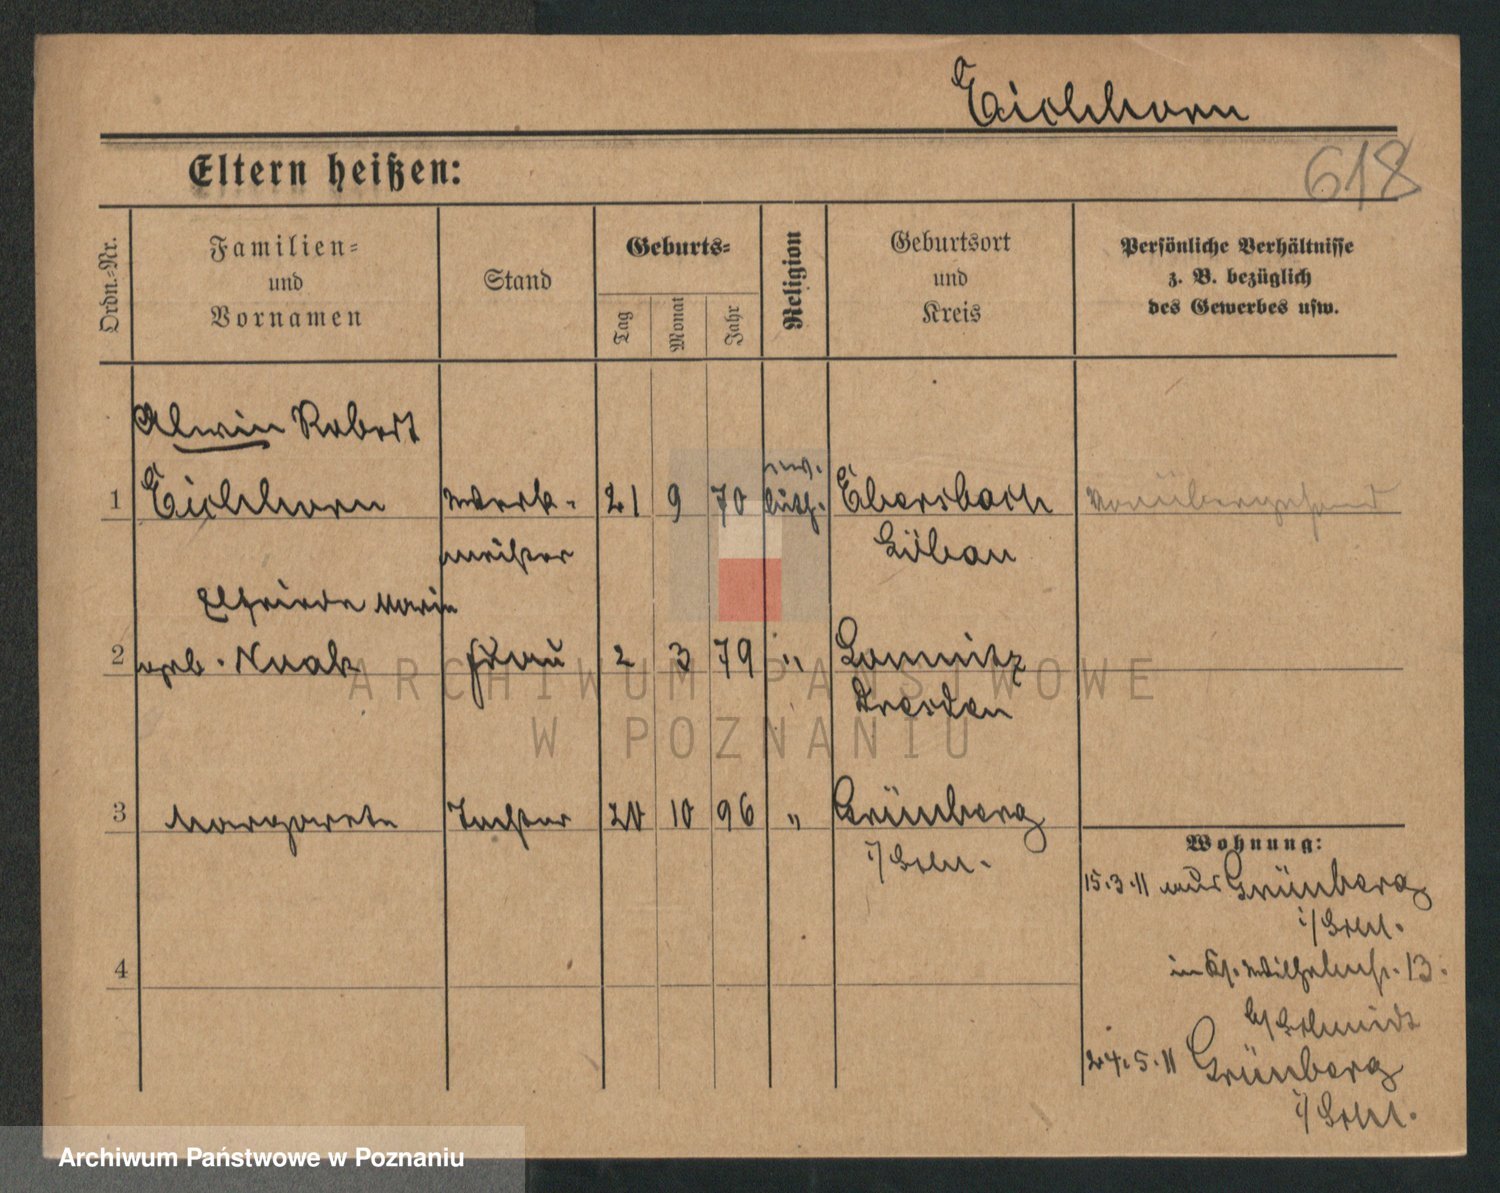 Eichhorn
618
Eltern heißen:
Ordn.=Nr.
Familien=
und
Vornamen
Stand
Geburts=
Tag
Monat
Jahr
Religion
Geburtsort
und
Kreis
Persönliche Verhältnisse
z. B. bezüglich
des Gewerbes usw.
Alwin Robert
1 Eichhorn Werk- 21 9 70 ev. luth. Ebersbach Vorübergehend
meister Löbau
Elfriede Marie
2 geb. Noak Frau 2 3 79 " Lomnitz
Dresden
3 Margarete Tochter 20 10 96 " Grünberg
i/Schl.
Wohnung:
15.3.11 aus Grünberg
i/Schl.
in Wilhelmstr. 13.
b/ Schmidt
4
24.5.11 Grünberg
i/Schl.
ARCHIWUM PAŃSTWOWE
W POZNANIU
Archiwum Państwowe w Poznaniu